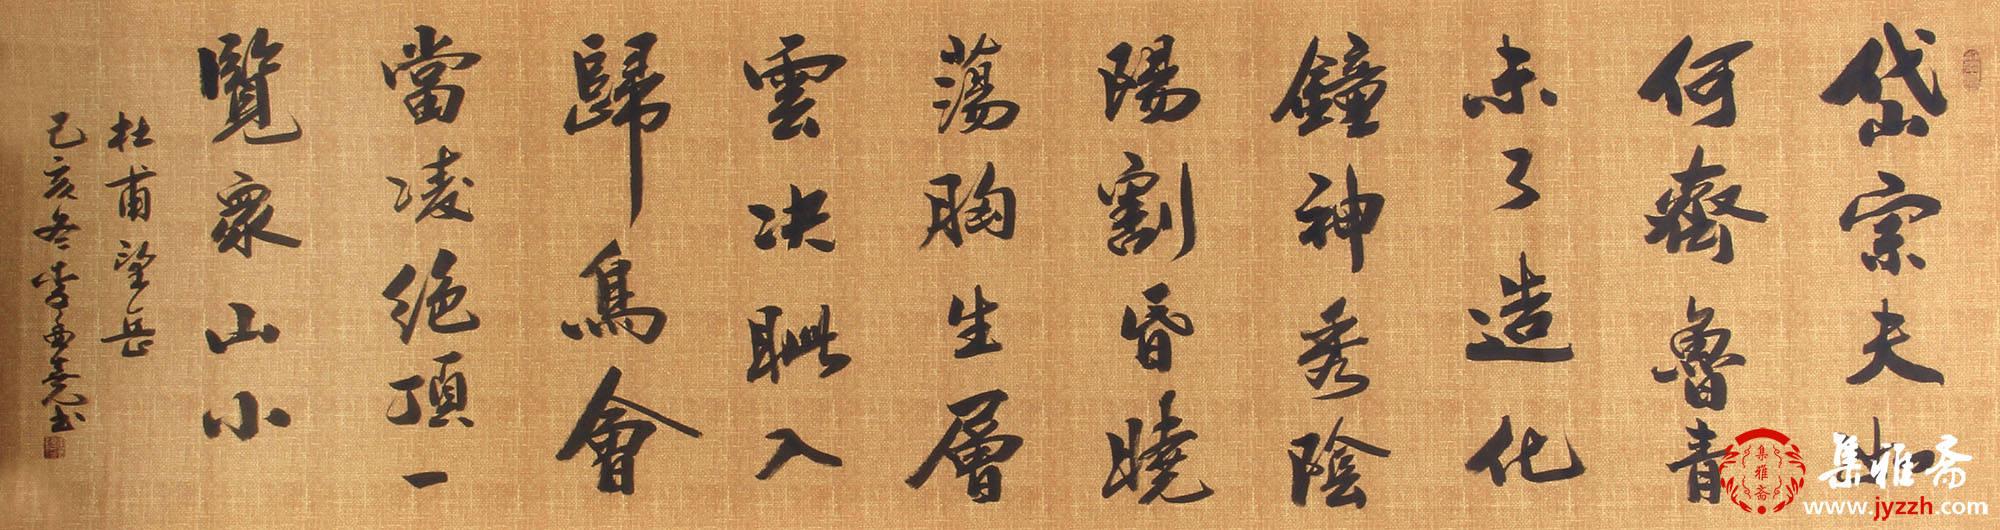 岱宗夫如
何齊魯青
未了造化
鐘神秀陰
陽割昏曉
蕩胸生層
雲决眦入
歸鳥會
當凌絕頂一
覽眾山小
杜甫望岳
己亥冬李西尧书
集雅斋
集雅斋
www.jyzzh.com